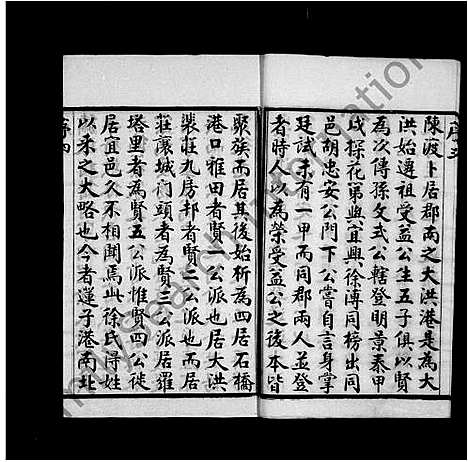 序三
陳渡卜居郡南之大洪港是為大
洪始遷祖受益公生五子俱以賢
為次傳孫文式公轄登明景泰甲
戌探花弟與宜興徐溥同榜出同
邑胡忠安公門下公嘗自言身掌
廷試未有一甲而同郡兩人並登
者時人以為榮受益公之後本皆
聚族而居其後始析為四居石橋
港口雅田者賢一公派也居大洪
裴莊九房邦者賢二公派也而居
莊濠城門頭者為賢三公派居羅
塔里者為賢五公派惟賢四公徙
居宜邑久不相聞焉此徐氏得姓
以來之大略也今者蓮子港南北
序四